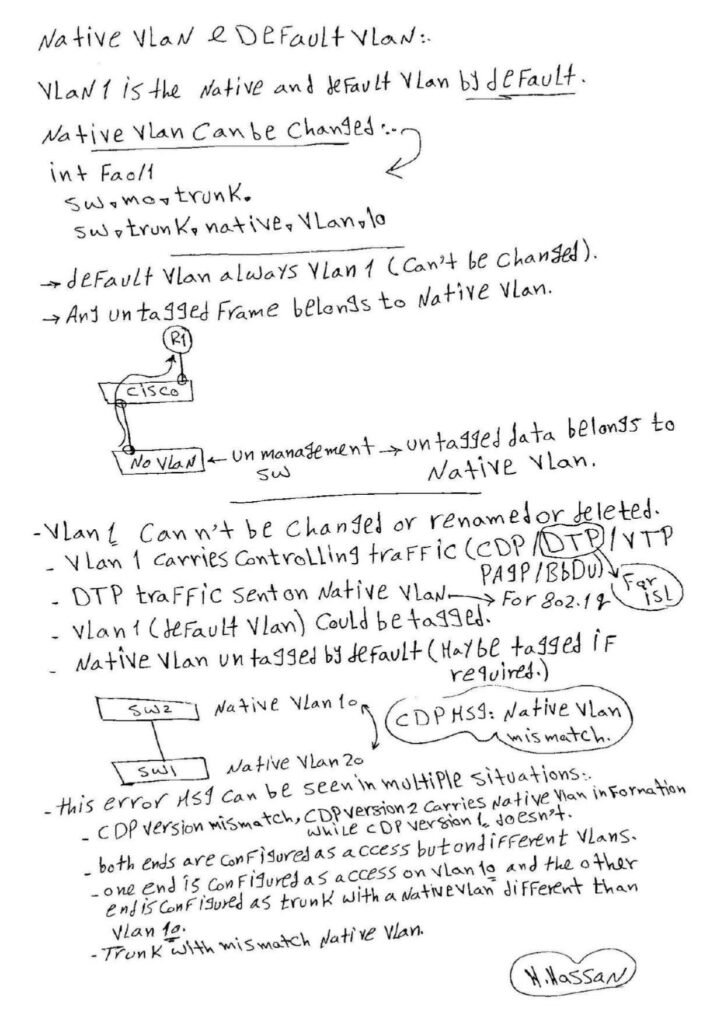 Native VLAN & Default VLAN:.
VLAN1 is the Native and default VLAN by default.
Native VLAN Can be Changed:..
int Fa0/1
sw, mo, trunk.
sw, trunk, native, VLAN, 10
→ default VLAN always VLAN 1 (Can't be Changed).
→ Any untagged Frame belongs to Native VLAN.
R1
CISCO
No VLAN ← Un management → untagged data belongs to
SW Native VLAN.
- VLAN 1 Cann't be Changed or renamed or deleted.
- VLAN 1 Carries Controlling traffic (CDP/DTP/VTP
PAgP/BbDU)
- DTP traffic sent on Native VLAN → For 802.1q
For
ISL
- VLAN1 (default VLAN) Could be tagged.
- Native VLAN untagged by default (Maybe tagged if
required.)
SW2 Native VLAN 10
CDP MSg: Native VLAN
mismatch.
SW1 Native VLAN 20
- this error Msg Can be seen in multiple situations:.
- CDP version mismatch, CDP version 2 Carries Native VLAN information
while CDP version 1 doesn't.
- both ends are configured as access but on different VLANs.
- one end is Configured as access on VLAN 10 and the other
end is Configured as trunk with a Native VLAN different than
VLAN 10.
- Trunk with mismatch Native VLAN.
H.Hassan